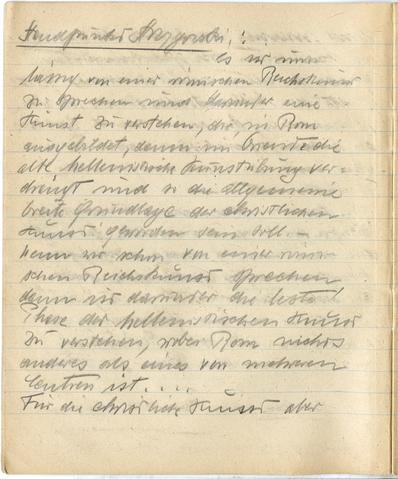 Standpunkt Strzygowski's:
Es ist unzu-
lässig von einer römischen Reichskunst
zu sprechen und darunter eine
Kunst zu verstehen, die in Rom
ausgebildet, dann im Oriente die
alte hellenistische Kunstübung ver-
drängt und so die allgemeine
breite Grundlage der christlichen
Kunst geworden sein soll. -
Wenn wir schon von einer römi-
schen Reichskunst sprechen,
dann ist darunter die letzte
Phase der hellenistischen Kunst
zu verstehen, wobei Rom nichts
anderes als eines von mehreren
Centren ist....
Für die christliche Kunst aber